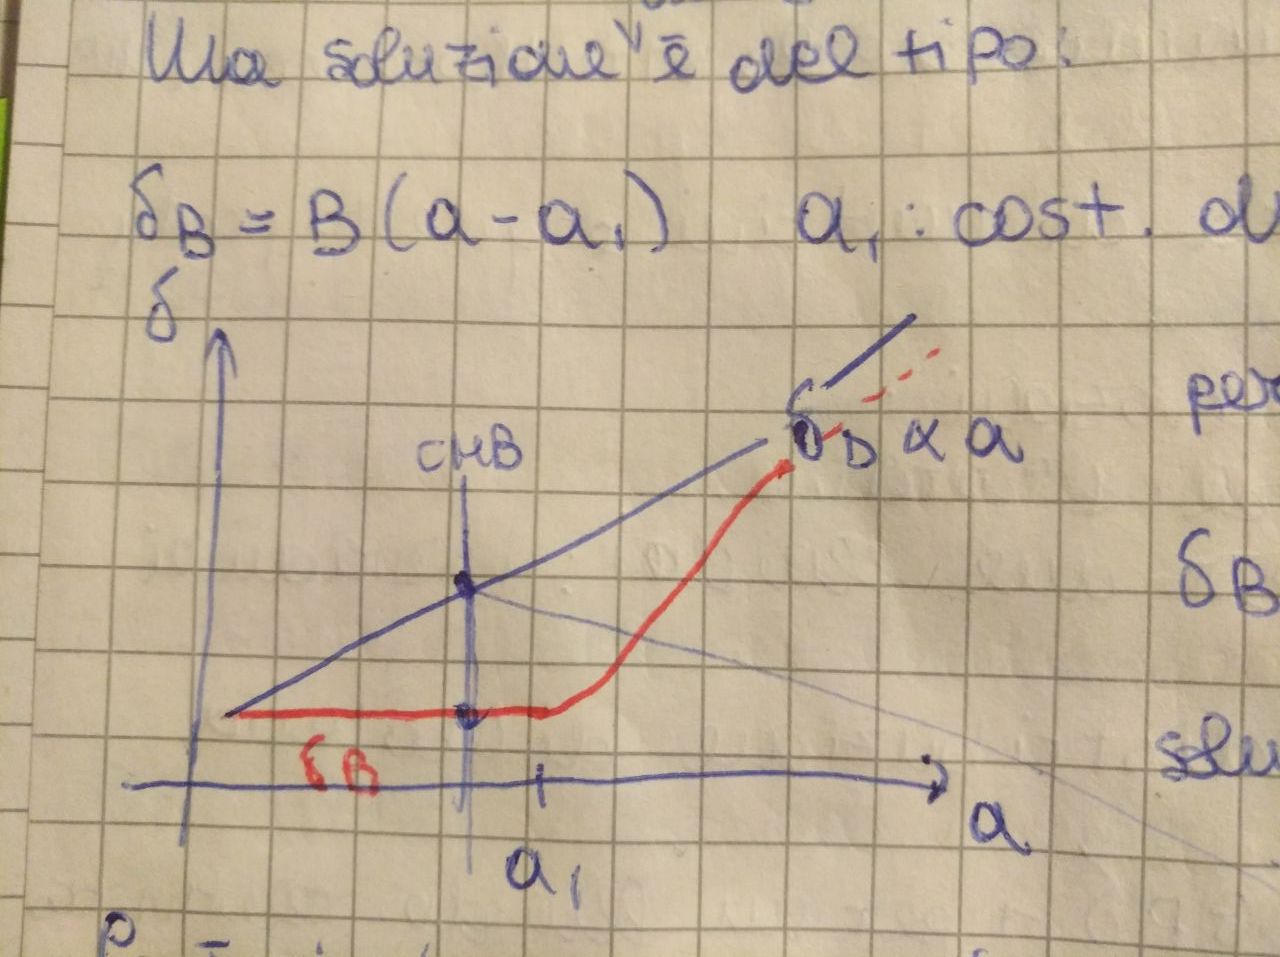 Una soluzione è del tipo:
δB = B(a - a₁) a₁ : cost. d
δ
CMB
δD ∝ a
per
δB
δB
solu
a
a₁